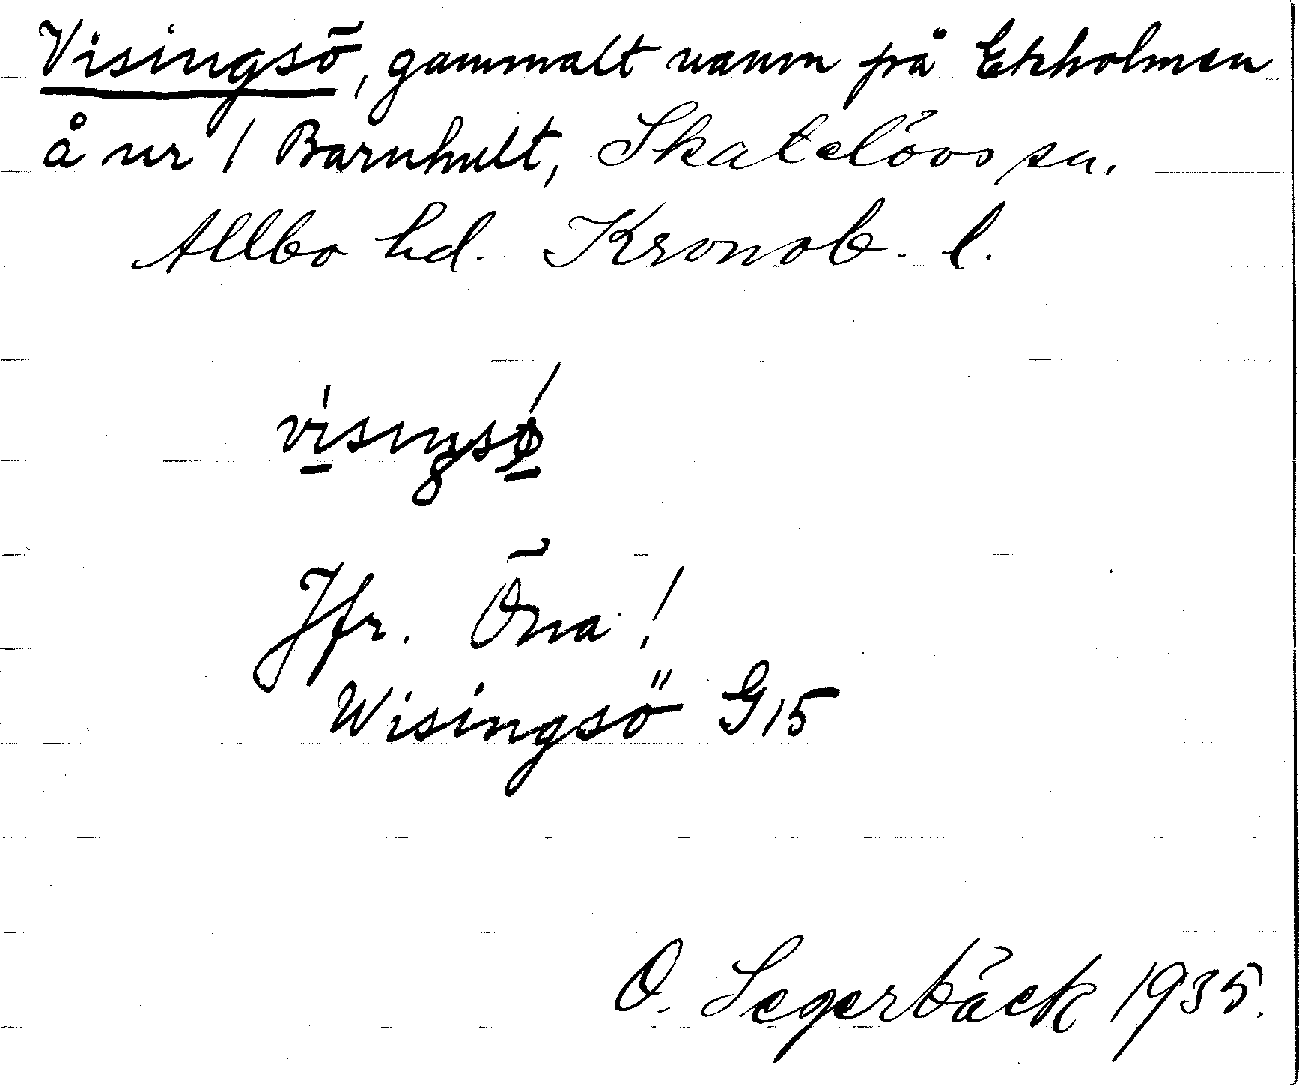 Visingsö, gammalt namn på Ekholmen
å nr 1 Barnhult, Skatelövs sn.
Allbo hd. Kronob. l.
visingsø
Jfr. Öna!
Wisingsö G15
O. Segerbäck 1935.